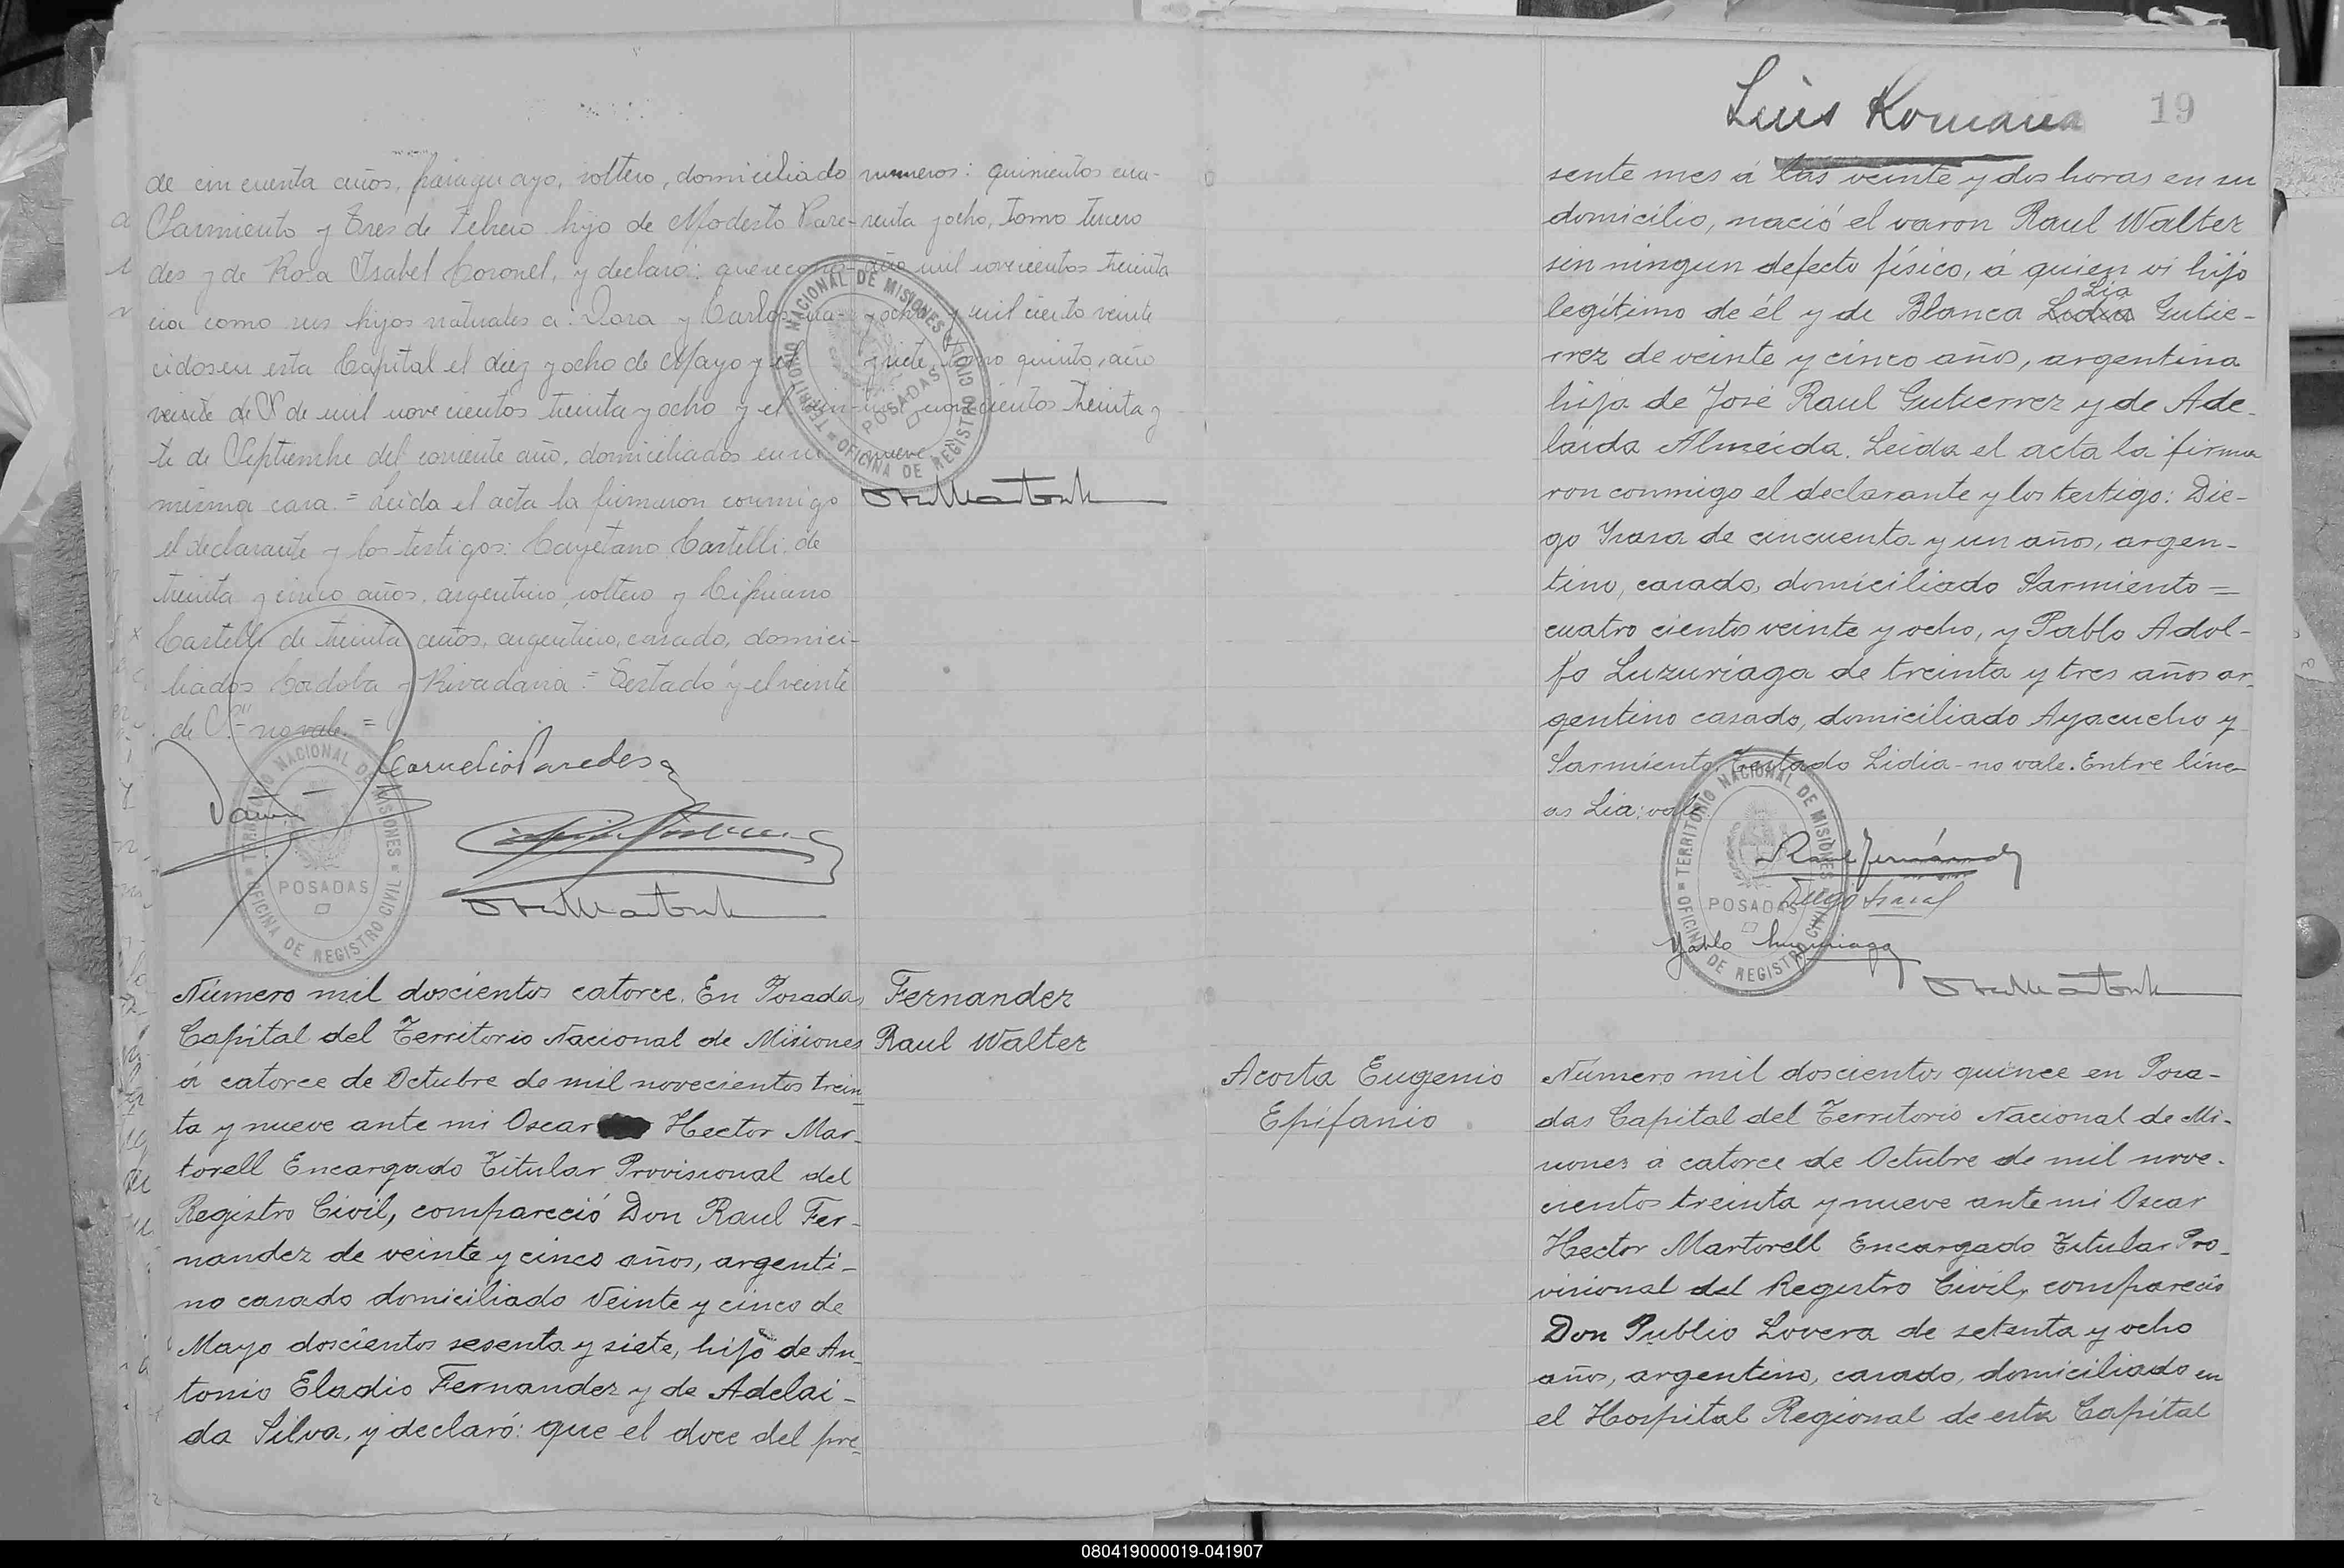 de cincuenta años, paraguayo, soltero, domiciliado
Sarmiento y Tres de Febrero hijo de Modesto Pare-
des y de Rosa Isabel Coronel, y declaró: que recono-
cia como sus hijos naturales a: Dora y Carlos, na-
cidos en esta Capital el diez y ocho de Mayo y el
veinte de S de mil novecientos treinta y ocho y el vein-
te de Septiembre del corriente año, domiciliados en su
misma casa. = Leida el acta la firmaron conmigo
el declarante y los testigos: Cayetano Castelli de
treinta y cinco años, argentino, soltero y Cipriano
Castelli de treinta años, argentino, casado, domici-
liados Córdoba y Rivadavia = Testado y el veinte
de S. no vale. =
Cornelio Paredes
numeros: quinientos cua-
renta y ocho, tomo tercero
año mil novecientos treinta
y ocho y mil ciento veinte
y siete, tomo quinto, año
mil novecientos treinta y
nueve
TERRITORIO NACIONAL DE MISIONES
POSADAS
OFICINA DE REGISTRO CIVIL
TERRITORIO NACIONAL DE MISIONES
POSADAS
OFICINA DE REGISTRO CIVIL
Número mil doscientos catorce. En Posadas
Capital del Territorio Nacional de Misiones
á catorce de Octubre de mil novecientos trein-
ta y nueve ante mi Oscar Hector Mar-
torell Encargado Titular Provisional del
Registro Civil, compareció Don Raul Fer-
nandez de veinte y cinco años, argenti-
no casado domiciliado Veinte y cinco de
Mayo doscientos sesenta y siete, hijo de An-
tonio Eladio Fernandez y de Adelai-
da Silva, y declaró: que el doce del pre-
Fernandez
Raul Walter
Luis Romana
19
sente mes á las veinte y dos horas en su
domicilio, nació el varon Raul Walter
sin ningun defecto físico, á quien vi hijo
Lia
legítimo de él y de Blanca Lidia Gutie-
rrez de veinte y cinco años, argentina
hija de José Raul Gutierrez y de Ade-
laida Almeida. Leida el acta la firma
ron conmigo el declarante y los testigo: Die-
go de cincuenta y un años, argen-
tino, casado, domiciliado Sarmiento =
cuatro cientos veinte y ocho, y Pablo Adol-
fo Luzuriaga de treinta y tres años ar-
gentino casado, domiciliado Ayacucho y
Sarmiento. Testado Lidia - no vale. Entre line-
as Lia: vale
Raul Fernández
Diego
Pablo Luzuriaga
TERRITORIO NACIONAL DE MISIONES
POSADAS
OFICINA DE REGISTRO CIVIL
Acosta Eugenio
Epifanio
Número mil doscientos quince en Posa-
das Capital del Territorio Nacional de Mi-
siones á catorce de Octubre de mil nove-
cientos treinta y nueve ante mi Oscar
Hector Martorell Encargado Titular Pro-
visional del Registro Civil, compareció
Don Publio Lovera de setenta y ocho
años, argentino, casado, domiciliado en
el Hospital Regional de esta Capital
080419000019-041907